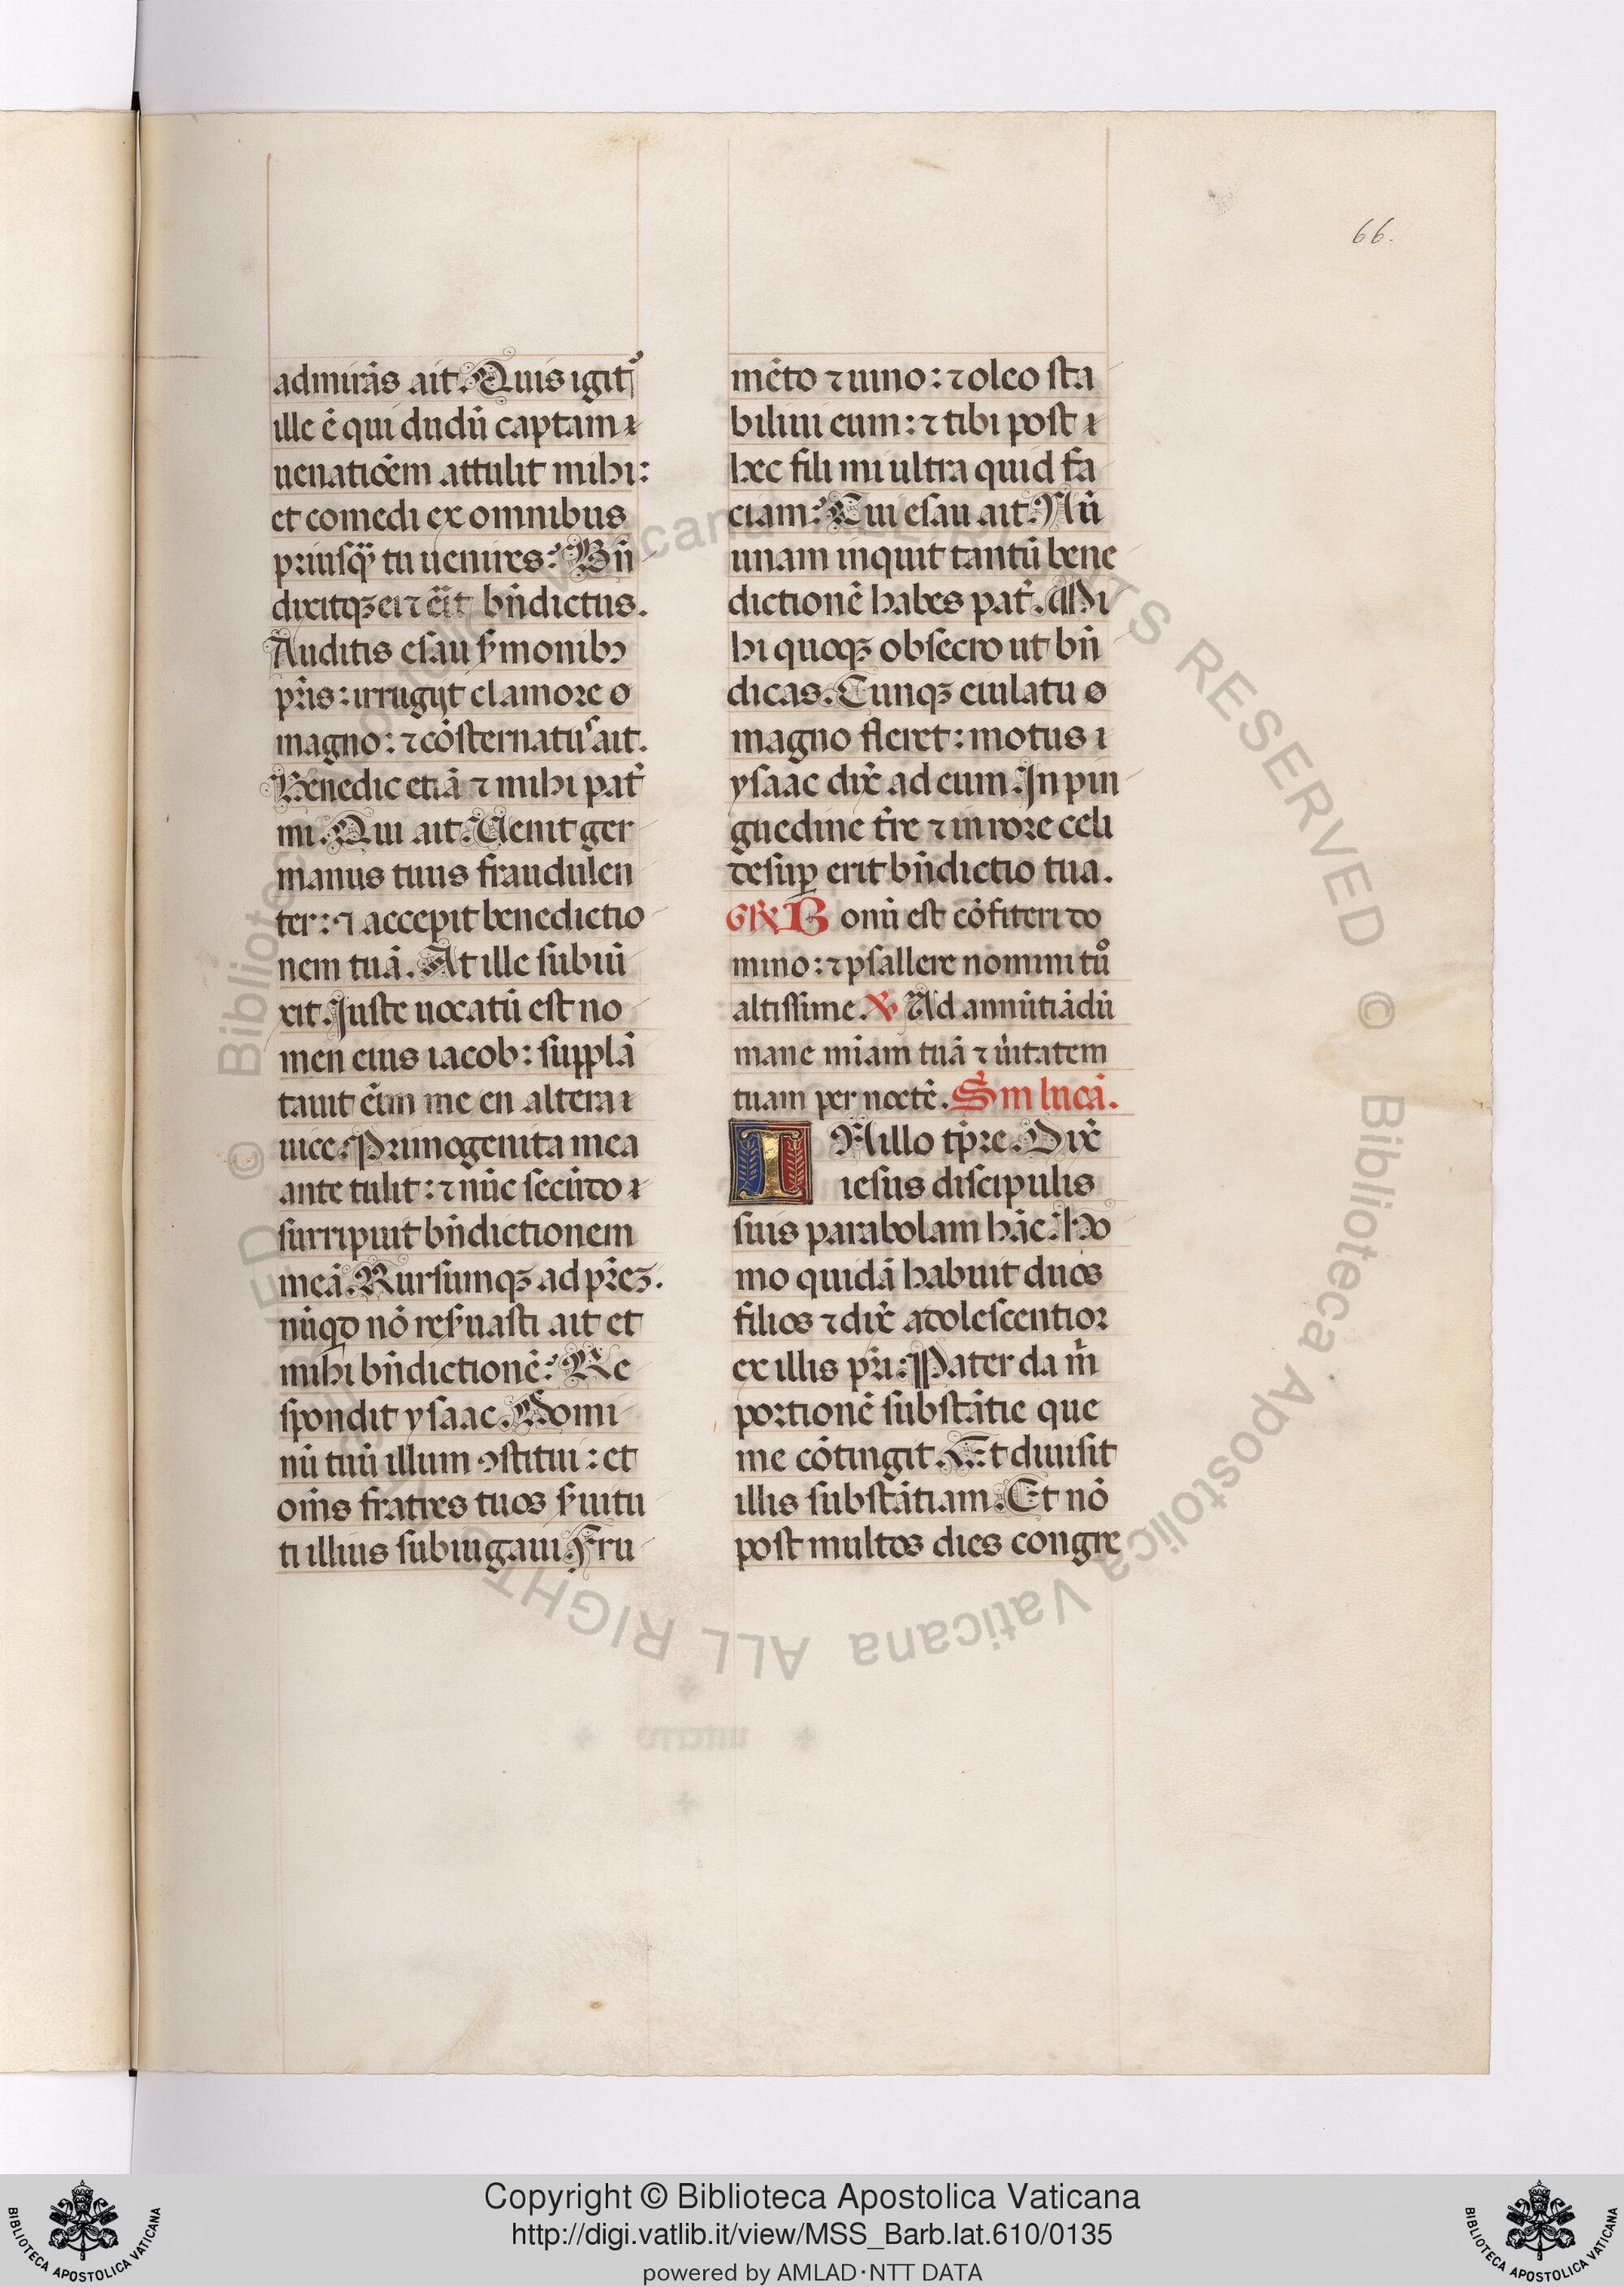 66.
admirãs ait. Quis igit᷑
ille ẽ qui dudũ captam
uenatiõem attulit mihi:
et comedi ex omnibus
priusq̃ tu uenires? Bñ
dixitqꝫ ei ⁊ erit bñdictus.
Auditis esau s̃monibꝫ
p̃ris: irrugijt clamore
magno: ⁊ cõsternatus ait.
Benedic etiã ⁊ mihi pat̃
mi. Qui ait. Uenit ger
manus tuus fraudulen
ter: ⁊ accepit benedictio
nem tuã. At ille subiũ
xit. Juste uocatũ est no
men eius iacob: supplã
tauit eĩm me en altera
uice. Primogenita mea
ante tulit: ⁊ nũc secũdo
surripuit bñdictionem
meã. Rursumqꝫ ad p̃reꝫ.
nũqd nõ res̃uasti ait et
mihi bñdictionẽ? Re
spondit ysaac. Domi
nũ tuũ illum ꝯstitui: et
om̃s fratres tuos s̃uitu
ti illius subiugaui. Fru
mẽto ⁊ uino: ⁊ oleo sta
biliui eum: ⁊ tibi post
hec fili mi ultra quid fa
ciam? Cui esau ait. Nũ
unam inquit tantũ bene
dictionẽ habes pat̃. Mi
hi quoqꝫ obsecro ut bñ
dicas. Cunqꝫ eiulatu
magno fleret: motus
ysaac dix̃ ad eum. In pin
guedine t̃re ⁊ in rore celi
desuꝑ erit bñdictio tua.
GR̃ Bonũ est cõfiteri do
mino: ⁊ psallere nomini tuo
altissime. ℣ Ad annũtiãdũ
mane miam tuã ⁊ ũitatem
tuam per noctẽ. Sm̃ lucã.
IN illo tp̃re. Dix̃
iesus discipulis
suis parabolam hãc. Ho
mo quidã habuit duos
filios ⁊ dix̃ adolescentior
ex illis p̃ri: Pater da m̃
portionẽ substãtie que
me cõtingit. Et diuisit
illis substãtiam. Et nõ
post multos dies congre
Copyright © Biblioteca Apostolica Vaticana
http://digi.vatlib.it/view/MSS_Barb.lat.610/0135
powered by AMLAD·NTT DATA
BIBLIOTECA APOSTOLICA VATICANA
BIBLIOTECA APOSTOLICA VATICANA
© Biblioteca Apostolica Vaticana ALL RIGHTS RESERVED